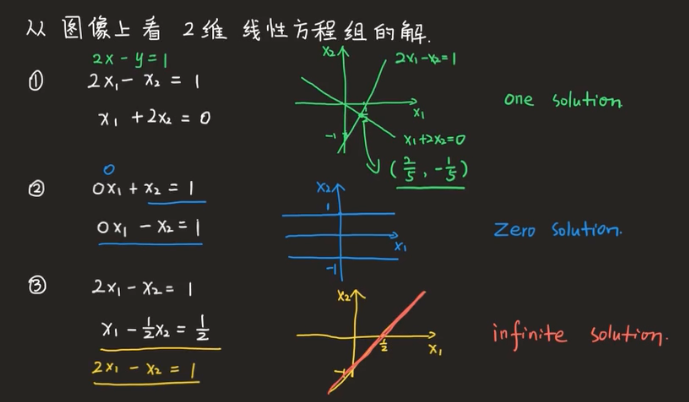 从图像上看 2维 线性方程组的解.
2x - y = 1
① 2x₁ - x₂ = 1
x₁ + 2x₂ = 0
x₂
2x₁-x₂=1
x₁
1/2
-1
x₁+2x₂=0
(2/5, -1/5)
one solution
0
② 0x₁ + x₂ = 1
0x₁ - x₂ = 1
x₂
1
x₁
-1
Zero solution.
③ 2x₁ - x₂ = 1
x₁ - 1/2x₂ = 1/2
2x₁ - x₂ = 1
x₂
1/2
x₁
-1
infinite solution.